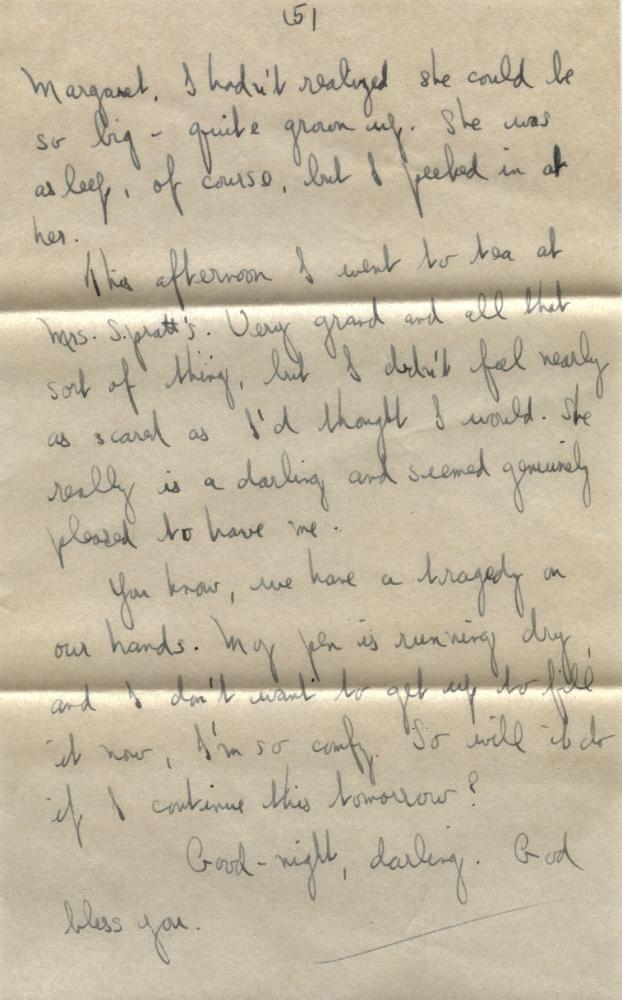 (5)
Margaret. I hadn't realized she could be
so big - quite grown up. She was
asleep, of course, but I peeked in at
her.
This afternoon I went to tea at
Mrs. Spratt's. Very grand and all that
sort of thing, but I didn't feel nearly
as scared as I'd thought I would. She
really is a darling and seemed genuinely
pleased to have me.
You know, we have a tragedy on
our hands. My pen is running dry
and I don't want to get up to fill
it now, I'm so comfy. So will it do
if I continue this tomorrow?
Good-night, darling. God
bless you.